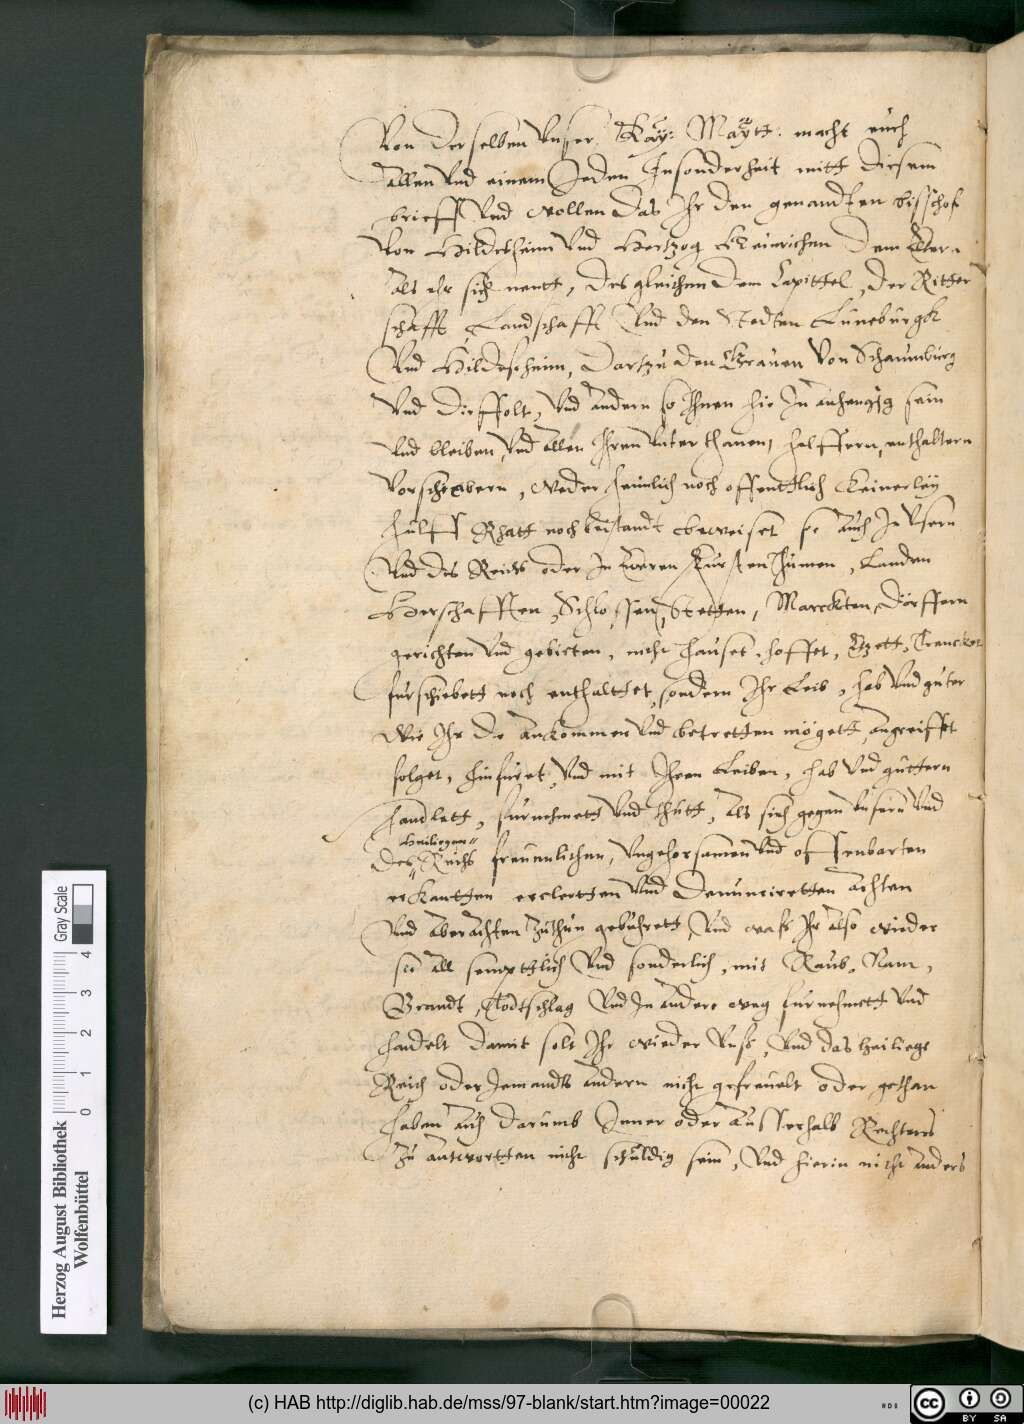 Von derselben Vnser Kay: Maytt: macht euch
Allen vnd einem Jeden Insonderheit mitt diesem
brieff Vnd wollen das Ihr den genandten bisschof
von Hildesheim Vnd Hertzog Heinrichen dem
als ehr sich nentt, des gleichen dem Capittel, der Ritter
schafft, Landschafft Vnd den Stedten Lüneburgk
Vnd Hildesheim, Dartzu den Grauen Von Schaumburg
Vnd Dieffolt, Vnd andern so Ihnen hie In anhengig sein
vnd bleiben, Vnd allen Ihren Vnterthanen, helffern, enthaltern
Vorschiebern, Weder heimlich noch offenttlich Keinerley
hulff Rhatt noch beistandt beweiset sie auch In Vnsern
Vnd des Reichs oder In eweren Furstenthumen, Landen
Herschafften, Schlossen, Stetten, Marckten, Dörffern
gerichten Vnd gebieten, nicht hauset, hoffet, Etzett, Trencket
furschiebett noch enthalttet, sondern Ihr Leib, hab Vnd guter
Wie Ihr die ankommen Vnd betretten mögett, angreiffet
folget, hinfuret, Vnd mit Ihren Leiben, hab Vnd guttern
handlett, furnehmett Vnd thutt, als sich gegen Vnsern Vnd
Heiligen
des Reichs freuenlichen, Vngehorsamen Vnd offenbarten
erkantten erclertten Vnd Denuncirtten achten
Vnd aberachten zuthun geburett, Vnd was Ihr also wieder
sie all semptlich Vnd sonderlich, mit Raub, Nam,
Brandt, Todtschlag Vnd In andere weg furnehmett Vnd
handelt damit solt Ihr wieder Vnss, Vnd das heiliege
Reich oder Jemandts andern nicht gefreuelt oder gethan
haben auch darumb Inner oder ausserhalb Rechtens
zu antwortten nicht schuldig sein, Vnd hierin nicht anders
Herzog August Bibliothek
Wolfenbüttel
0 1 2 3 4
Gray Scale
(c) HAB http://diglib.hab.de/mss/97-blank/start.htm?image=00022
cc BY SA